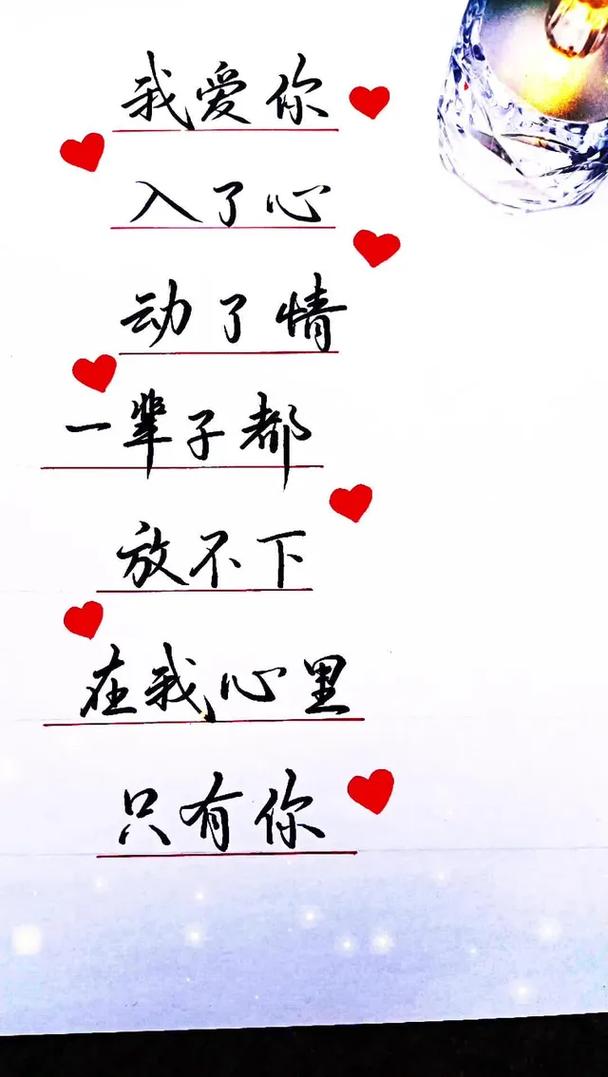 我爱你
入了心
动了情
一辈子都
放不下
在我心里
只有你